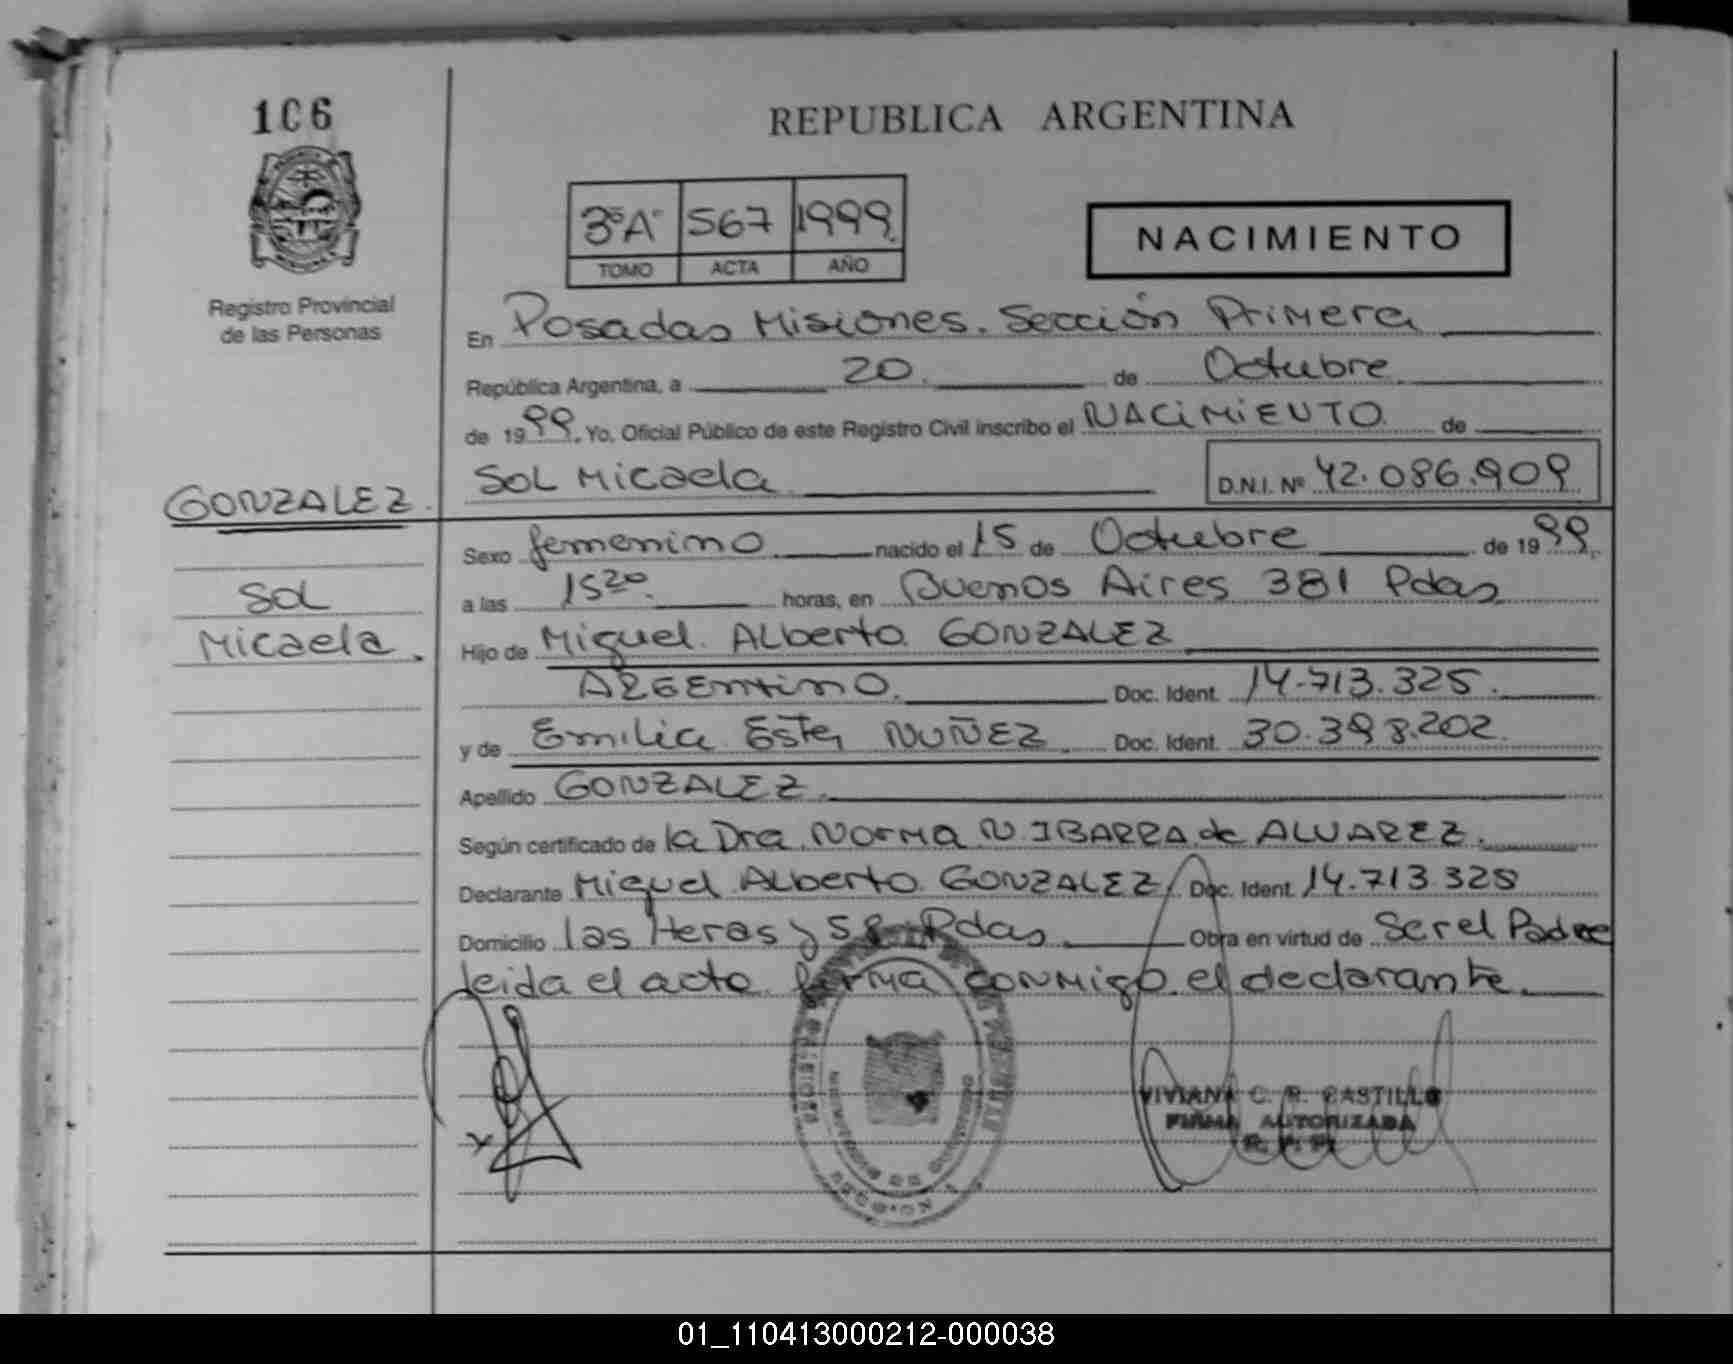 106
REPUBLICA ARGENTINA
3º A 567 1999
TOMO ACTA AÑO
NACIMIENTO
Registro Provincial
de las Personas
En Posadas Misiones. Sección Primera
República Argentina, a 20 de Octubre
de 1999. Yo, Oficial Público de este Registro Civil inscribo el NACIMIENTO de
SOL Micaela D.N.I. Nº 42.086.909
GONZALEZ
Sexo femenino nacido el 15 de Octubre de 1999.
a las 15 20 horas, en Buenos Aires 381 Pdas
SOL
Micaela.
Hijo de Miguel Alberto GONZALEZ
ARGENTINO. Doc. Ident. 14.713.325.
y de Emilia Ester NUÑEZ. Doc. Ident. 30.398.202.
Apellido GONZALEZ.
Según certificado de la Dra. Norma N. IBARRA de ALVAREZ.
Declarante Miguel Alberto GONZALEZ Doc. Ident. 14.713.325
Domicilio las Heras y 58 Pdas Obra en virtud de Ser el Padre
leida el acta firma conmigo el declarante.
VIVIANA C. R. CASTILLO
FIRMA AUTORIZADA
01_110413000212-000038